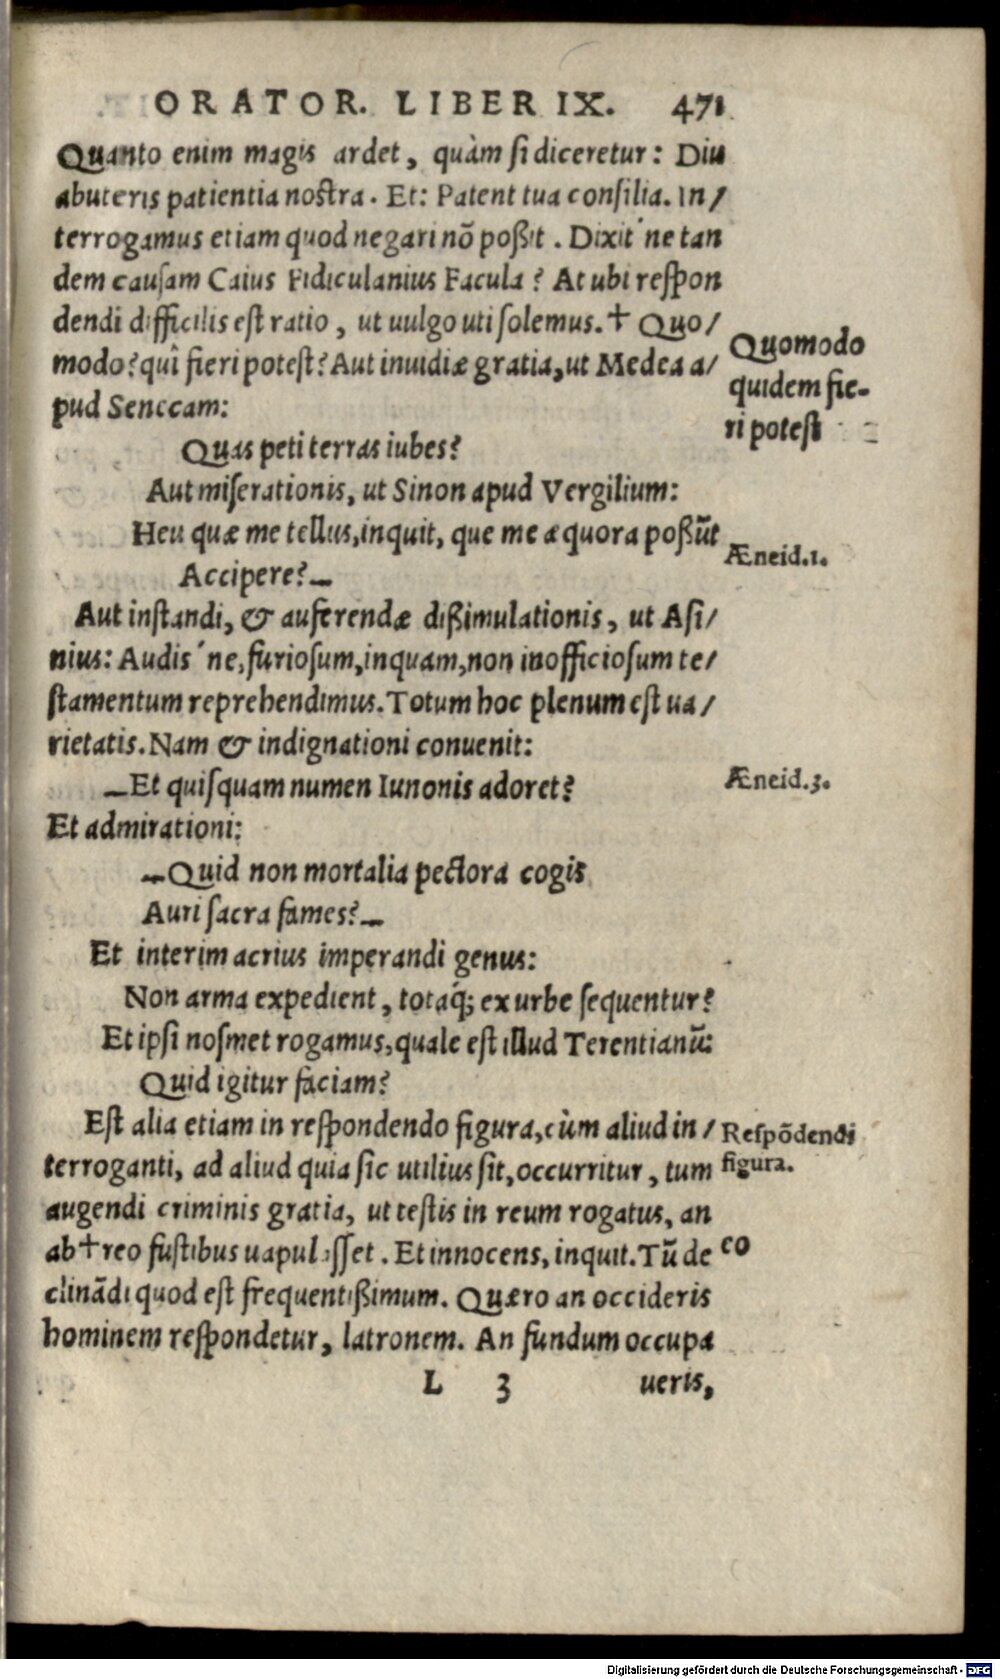 ORATOR. LIBER IX. 471
Quanto enim magis ardet, quàm si diceretur: Diu
abuteris patientia nostra. Et: Patent tua consilia. In/
terrogamus etiam quod negari nõ poßit. Dixit'ne tan
dem causam Caius Fidiculanius Facula? At ubi respon
dendi difficilis est ratio, ut uulgo uti solemus.† Quo/
modo? quî fieri potest? Aut inuidiæ gratia, ut Medea a/
pud Senecam:
Quomodo
quidem fie-
ri potest
Quas peti terras iubes?
Aut miserationis, ut Sinon apud Vergilium:
Heu quæ me tellus, inquit, que me æquora poßũt
Æneid.1.
Accipere?—
Aut instandi, & auferendæ dißimulationis, ut Asi/
nius: Audis'ne, furiosum, inquam, non inofficiosum te/
stamentum reprehendimus. Totum hoc plenum est ua/
rietatis. Nam & indignationi conuenit:
—Et quisquam numen Iunonis adoret?
Æneid.3.
Et admirationi:
—Quid non mortalia pectora cogis
Auri sacra fames?—
Et interim acrius imperandi genus:
Non arma expedient, totaq́; ex urbe sequentur?
Et ipsi nosmet rogamus, quale est illud Terentianũ:
Quid igitur faciam?
Est alia etiam in respondendo figura, cùm aliud in/
terroganti, ad aliud quia sic utilius sit, occurritur, tum
Respõdendi
figura.
augendi criminis gratia, ut testis in reum rogatus, an
ab†reo fustibus uapulasset. Et innocens, inquit. Tũ de
eo
clinãdi quod est frequentißimum. Quæro an occideris
hominem respondetur, latronem. An fundum occupa
L 3 ueris,
Digitalisierung gefördert durch die Deutsche Forschungsgemeinschaft - DFG